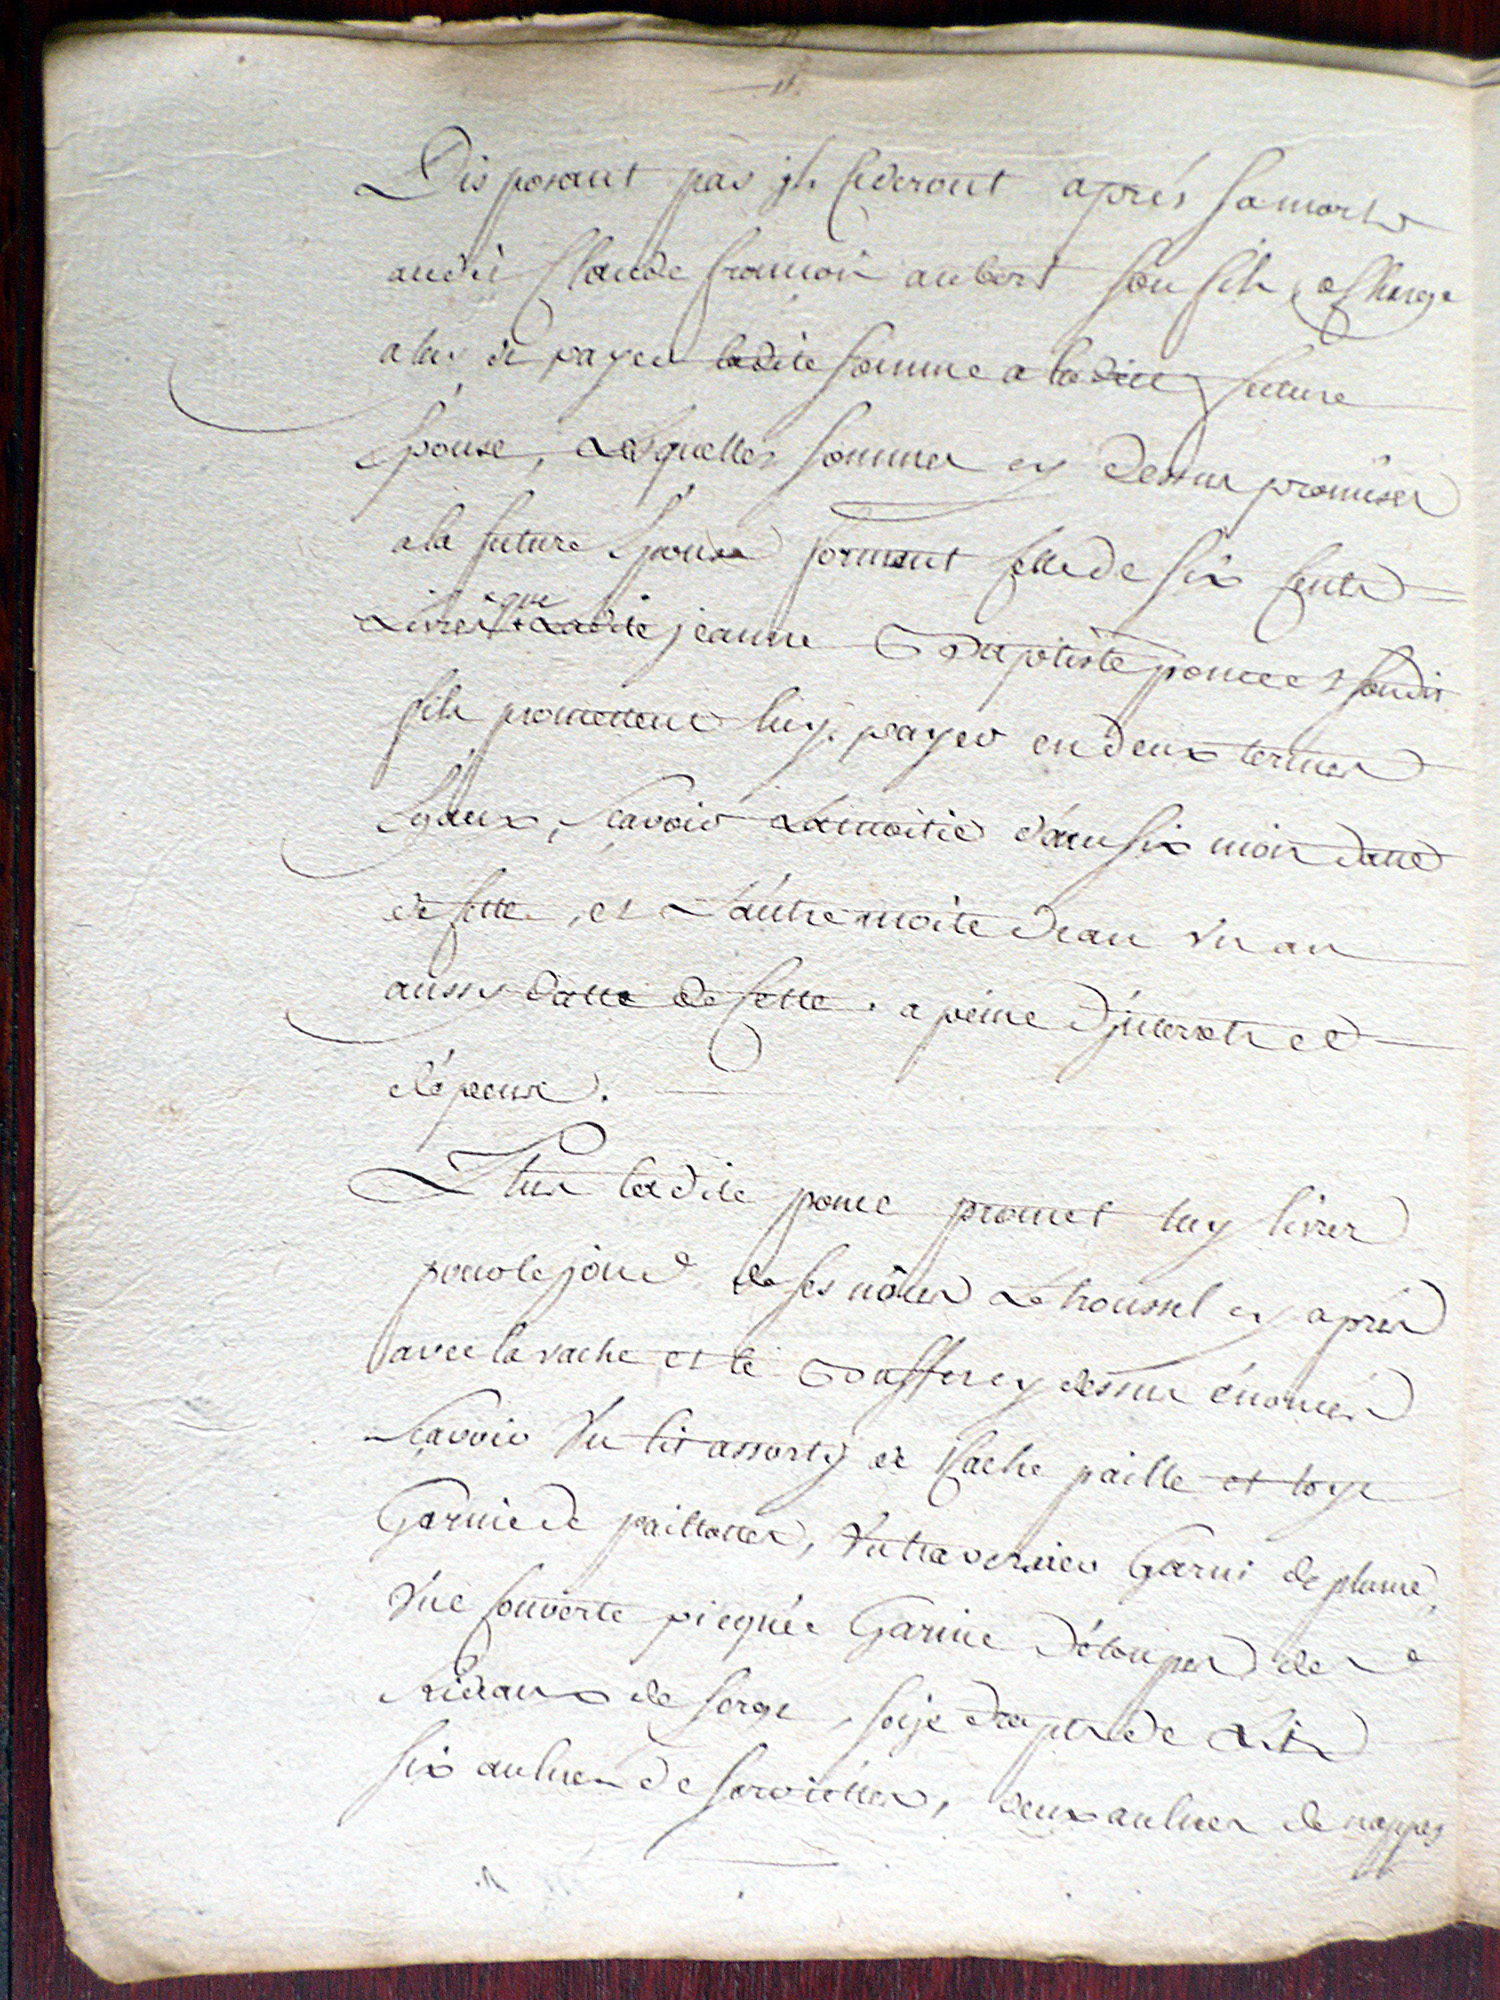 Disposant pas jls sederont aprés sa mort
audit Claude francois aubert son fils a Charge
a luy de payer ladite somme a ladite future
Epouse, Lesquelles sommes cy dessus promises
a la future Epouse forment selle de six sents
Livres que Ladite jeanne Baptiste ponce et son dit
fils promettent luy payer en deux termes
Egaux, scavoir La moitié dans six mois datte
de sette, et L'autre moite dicy au vn an
aussy datte de sette, a peine d'jnterets et
dépense.
Plus ladite ponce promet luy livrer
pour le jour de ses nôces Le troussel cy aprés
avec la vache et le Coffre cy dessus énoncés
scavoir Vn lit assorty de Vache paille et toye
Garnie de paillottes, Vn traversier Garni de plume,
Vne Couverte picquée Garnie d'étoupes de
Rideaux de serge, seize draps de Lit
six aulnes de serviettes, deux aulnes de nappes